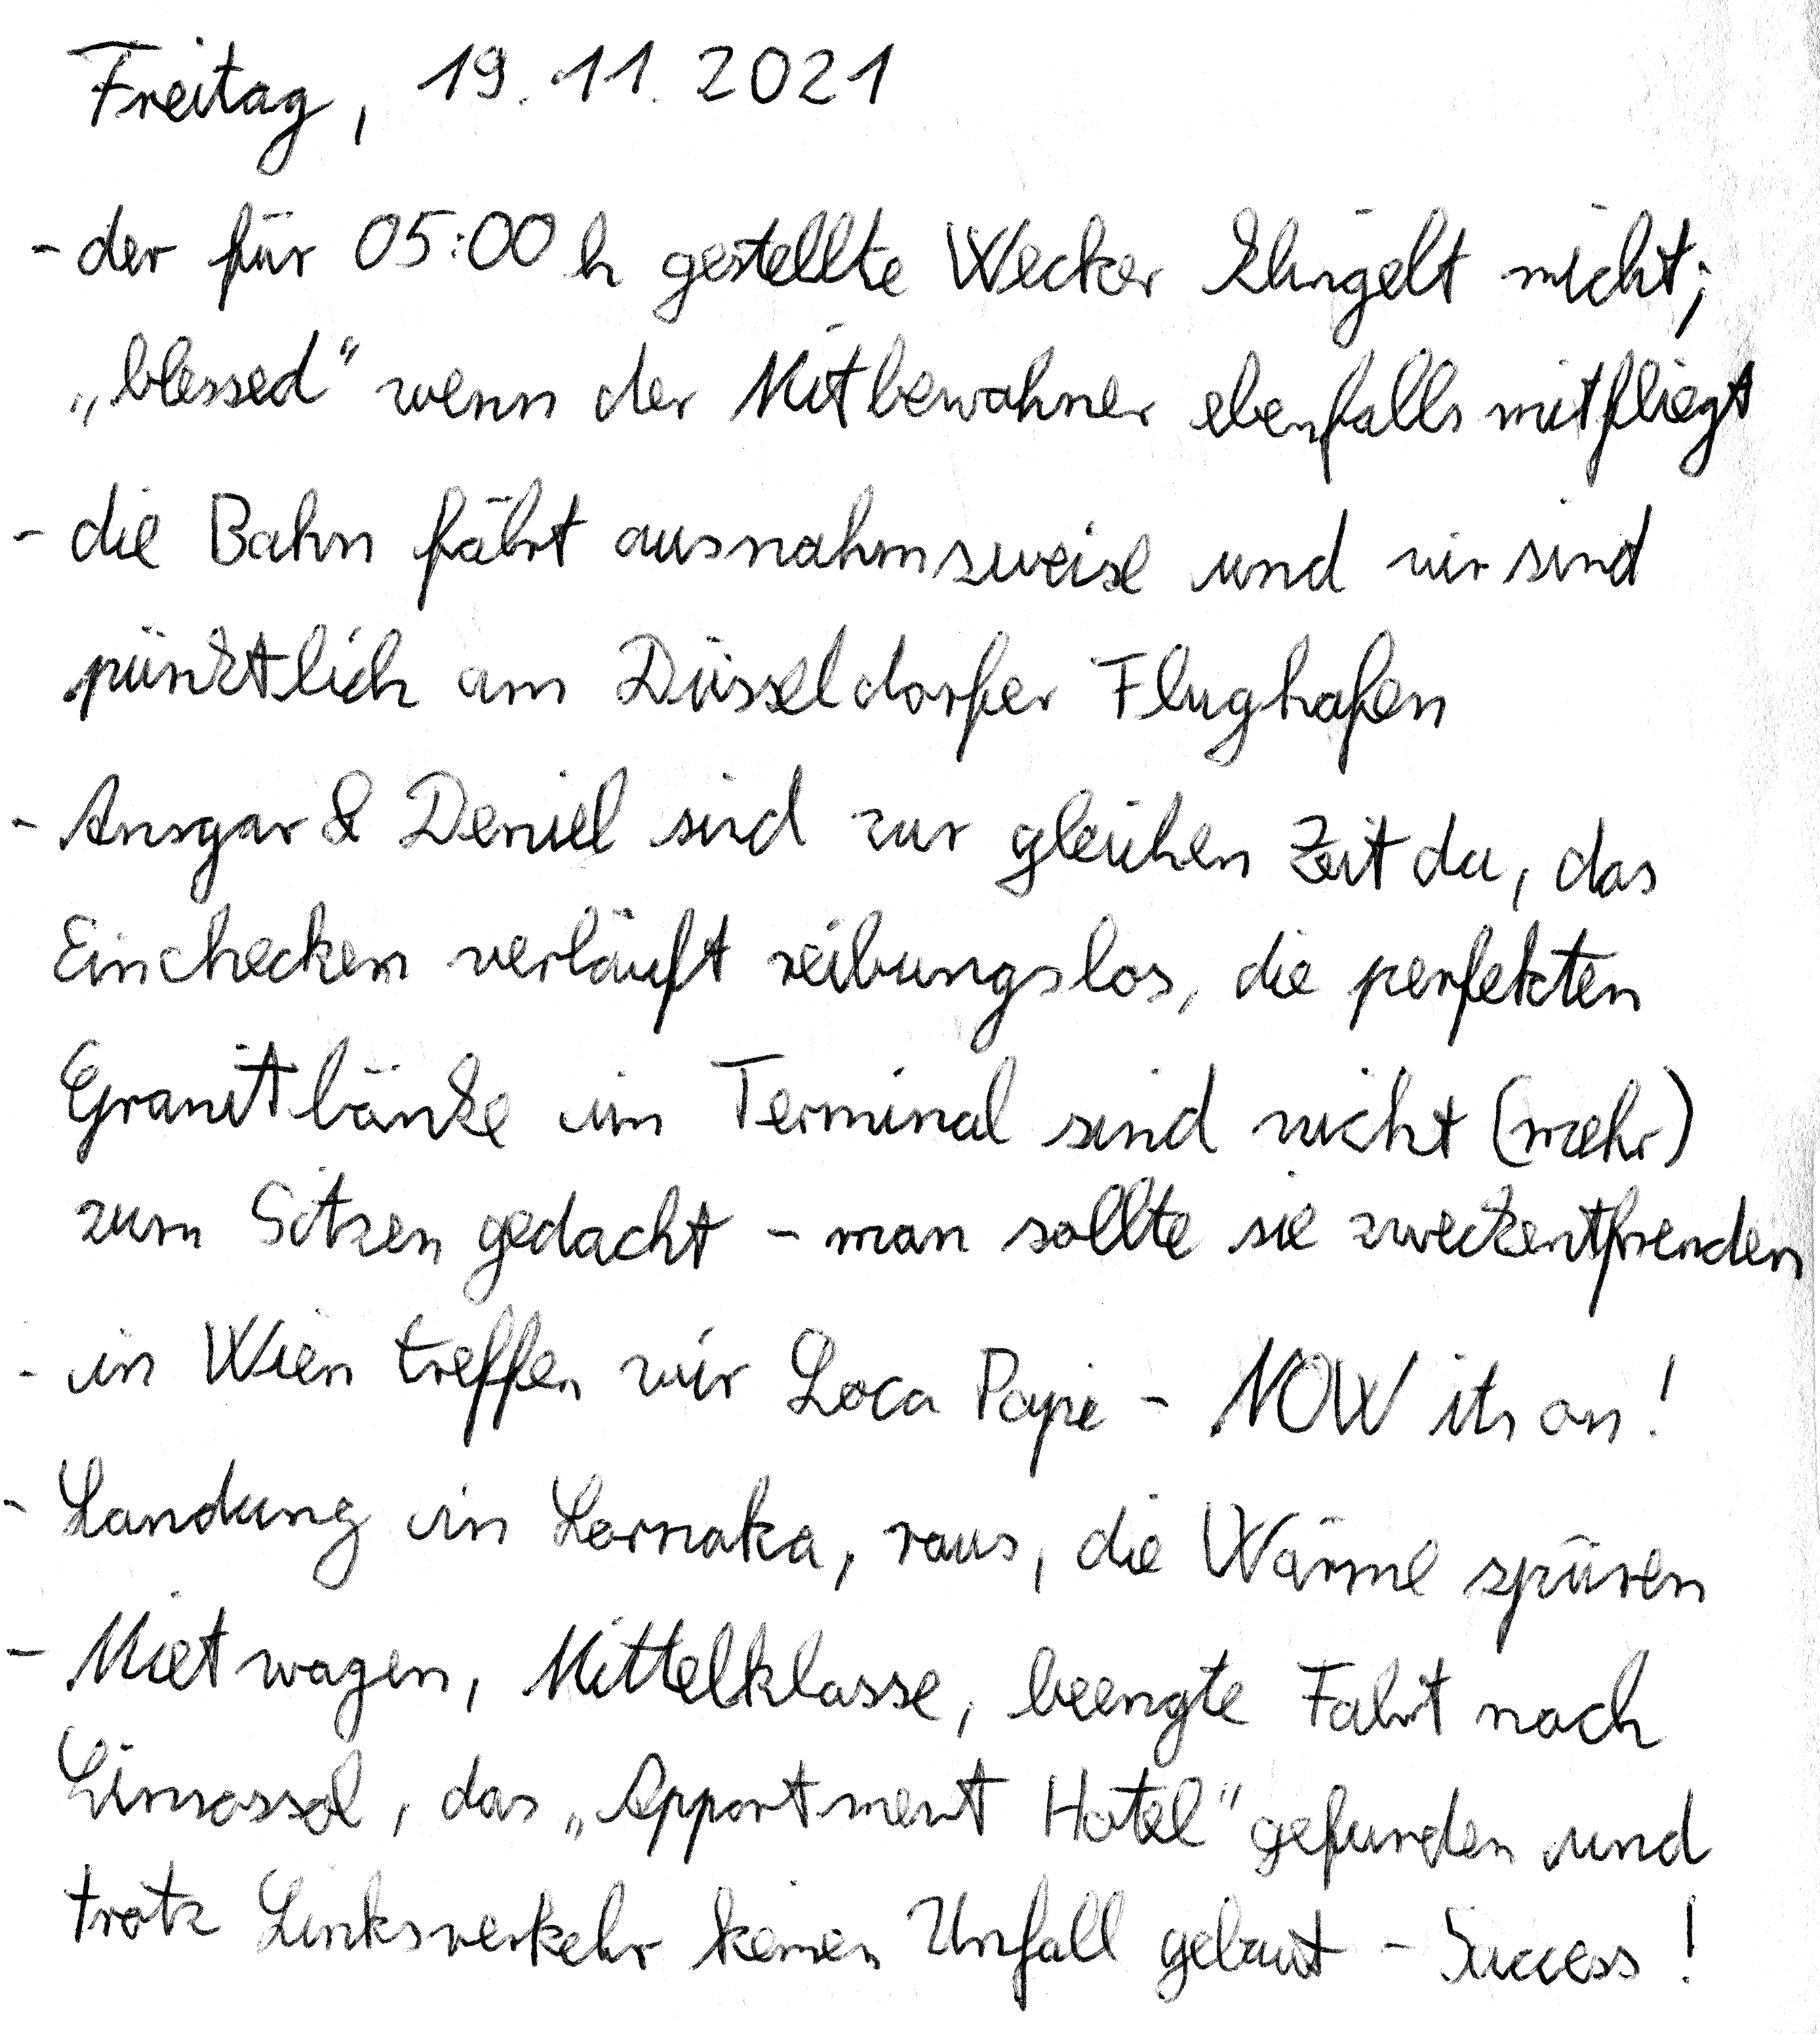 Freitag, 19.11.2021
- der für 05:00 h gestellte Wecker klingelt nicht;
„blessed“ wenn der Mitbewohner ebenfalls mitfliegt
- die Bahn fährt ausnahmsweise und wir sind
pünktlich am Düsseldorfer Flughafen
- Ansgar & Deniel sind zur gleichen Zeit da, das
Einchecken verläuft reibungslos, die perfekten
Granitbänke im Terminal sind nicht (mehr)
zum Sitzen gedacht - man sollte sie zweckentfremden
- in Wien treffen wir Loca Papi - NOW its on!
- Landung in Larnaka, raus, die Wärme spüren
- Mietwagen, Mittelklasse, beengte Fahrt nach
Limassol, das „Appartment Hotel“ gefunden und
trotz Linksverkehr keinen Unfall gebaut - Success!